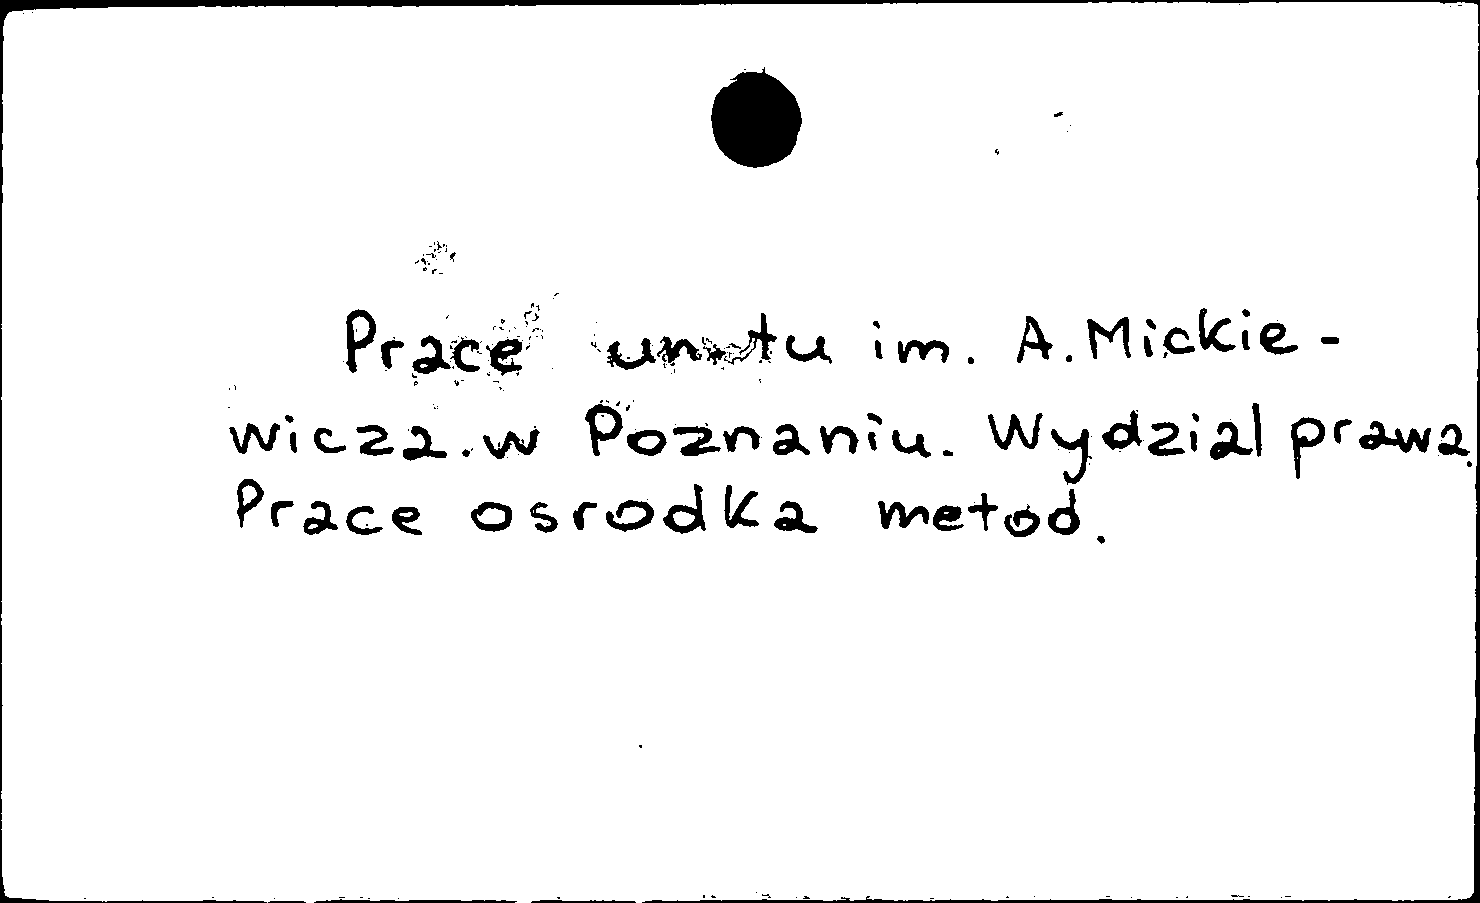 Prace un-tu im. A. Mickie-
wicza. w Poznaniu. Wydzial prawa.
Prace osrodka metod.